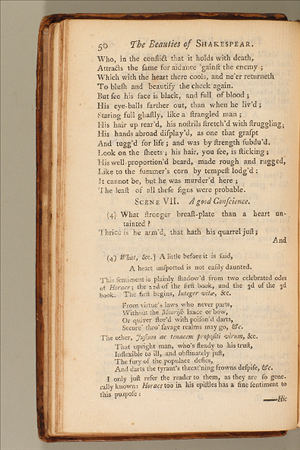 50 The Beauties of SHAKESPEAR.
Who, in the conflict that it holds with death,
Attracts the same for aidance 'gainst the enemy;
Which with the heart there cools, and ne'er returneth
To blush and beautify the cheek again.
But see his face is black, and full of blood;
His eye-balls farther out, than when he liv'd;
Staring full ghastly, like a strangled man;
His hair up rear'd, his nostrils stretch'd with struggling;
His hands abroad display'd, as one that graspt
And tugg'd for life; and was by strength subdu'd.
Look on the sheets; his hair, you see, is sticking;
His well-proportion'd beard, made rough and rugged,
Like to the summer's corn by tempest lodg'd:
It cannot be, but he was murder'd here;
The least of all these signs were probable.
SCENE VII. A good Conscience.
(4) What stronger breast-plate than a heart un-
tainted?
Thrice is he arm'd, that hath his quarrel just;
And
(4) What, &c.] A little before it is said,
A heart unspotted is not easily daunted.
This sentiment is plainly shadow'd from two celebrated odes
of Horace; the 22d of the first book, and the 3d of the 3d
book. The first begins, Integer vitæ, &c.
From virtue's laws who never parts,
Without the Moorish lance or bow,
Or quiver stor'd with poison'd darts,
Secure tho' savage realms may go, &c.
The other, Justum ac tenacem propositi virum, &c.
That upright man, who's steady to his trust,
Inflexible to ill, and obstinately just,
The fury of the populace defies,
And darts the tyrant's threat'ning frowns despise, &c.
I only just refer the reader to them, as they are so gene-
rally known: Horace too in his epistles has a fine sentiment to
this purpose:
—Hic